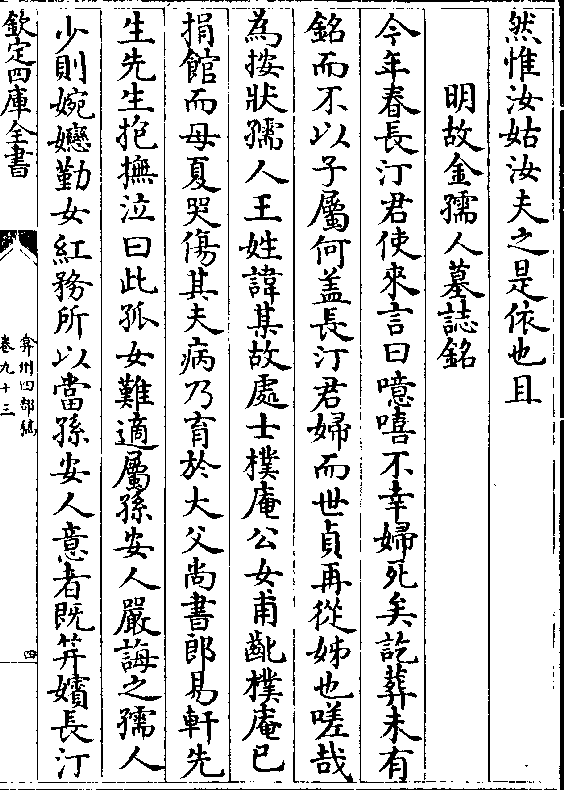 然惟汝姑汝夫之是依也且
明故金孺人墓誌銘
今年春長汀君使來言曰噫嘻不幸婦死矣訖葬未有
銘而不以子屬何盖長汀君婦而世貞再從姊也嗟哉
為按狀孺人王姓諱某故處士樸庵公女甫齔樸庵已
捐館而母夏哭傷其夫病乃育於大父尚書郎易軒先
生先生抱撫泣曰此孤女難適屬孫安人嚴誨之孺人
少則婉嬺勤女紅務所以當孫安人意者既筓嬪長汀
欽定四庫全書
弇州四部稿
卷九十三
四